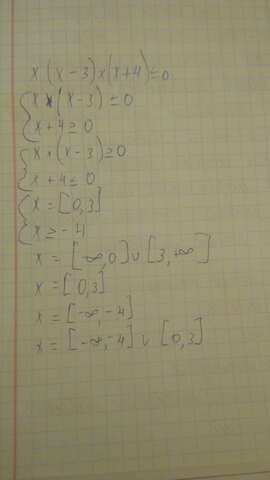 x · (x-3) × (x+4) ≤ 0
{ x × (x-3) ≤ 0
x+4 ≥ 0
{ x · (x-3) ≥ 0
x+4 ≤ 0
{ x = [0,3]
x ≥ -4
x = [-∞,0] ∪ [3,+∞]
x = [0,3]
x = [-∞,-4]
x = [-∞,-4] ∪ [0,3]